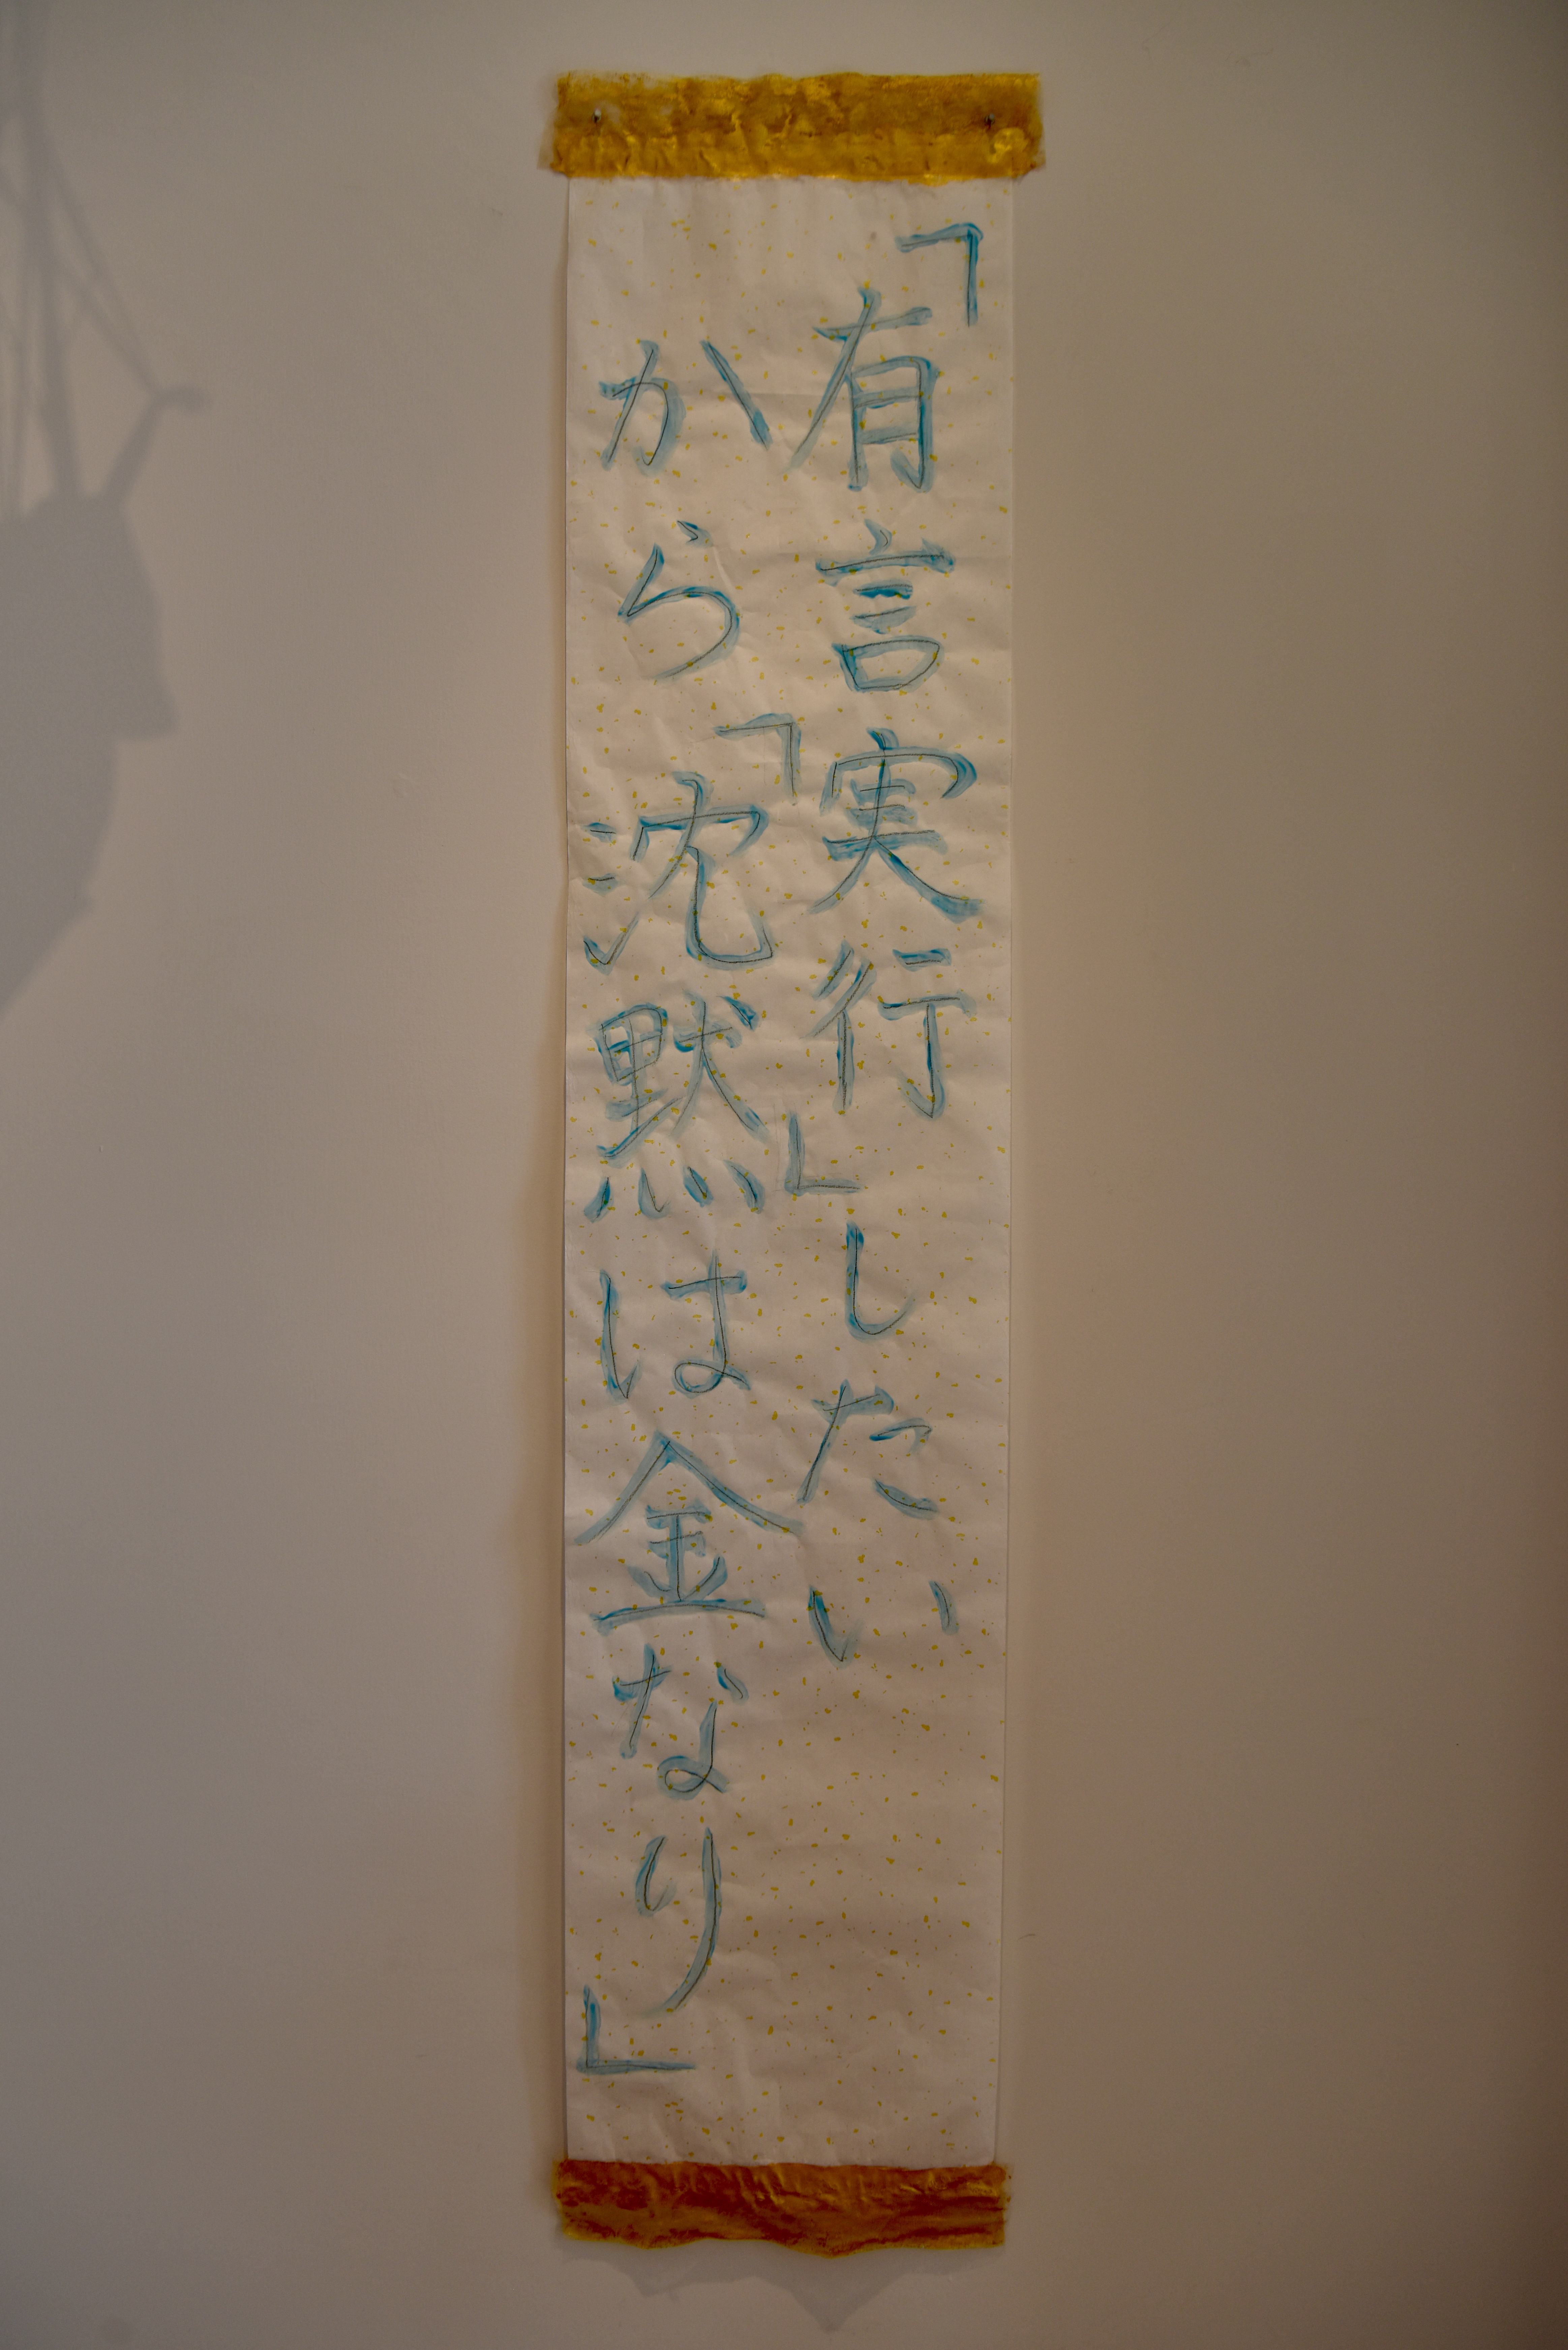 「有言実行」したい
から「沈黙は金なり」